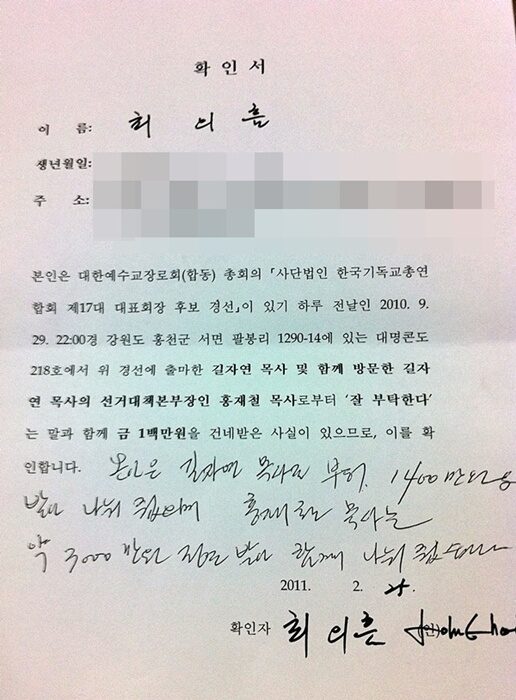 확 인 서
이 름: 최 의 흠
생년월일:
주 소:
본인은 대한예수교장로회(합동) 총회의 「사단법인 한국기독교총연
합회 제17대 대표회장 후보 경선」이 있기 하루 전날인 2010. 9.
29. 22:00경 강원도 홍천군 서면 팔봉리 1290-14에 있는 대명콘도
218호에서 위 경선에 출마한 길자연 목사 및 함께 방문한 길자
연 목사의 선거대책본부장인 홍재철 목사로부터 '잘 부탁한다'
는 말과 함께 금 1백만원을 건네받은 사실이 있으므로, 이를 확
인합니다. 본인은 길자연 목사로 부터, 1400만원을
받아 나눠 줬으며 홍재철 목사는
약 3000만원 정도 받아 함께 나눠 줬습니다
2011. 2. 25.
확인자 최 의 흠 (인) John Choi